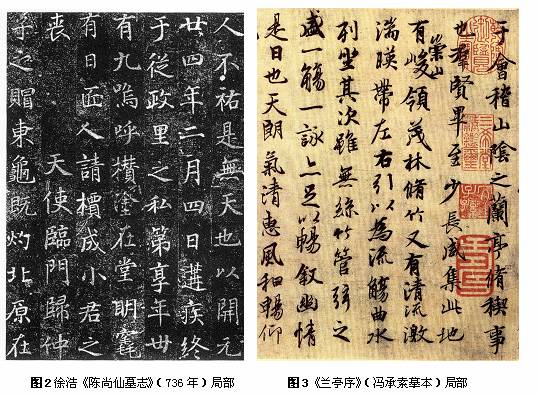 人不祐是無天也以開元
廿四年二月四日遘疾終
于從政里之私第享年卅
有九嗚呼攢塗在堂明
有日匠人請櫝成小君之
喪 天使臨門歸仲
子之賵東龜既灼北原在
于會稽山陰之蘭亭脩稧事
也羣賢畢至少長咸集此地
有崇山峻領茂林脩竹又有清流激
湍暎帶左右引以為流觴曲水
列坐其次雖無絲竹管弦之
盛一觴一詠亦足以暢叙幽情
是日也天朗氣清惠風和暢仰
图2 徐浩《陈尚仙墓志》(736年)局部
图3《兰亭序》(冯承素摹本)局部